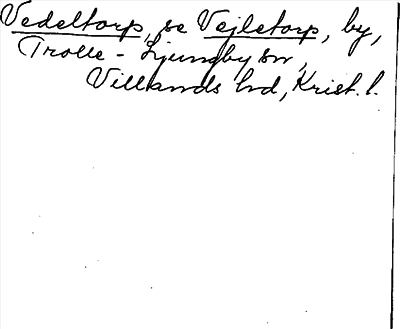 Vedeltorp, se Vejletorp, by,
Trolle-Ljungby sn,
Villands hd, Krist. l.